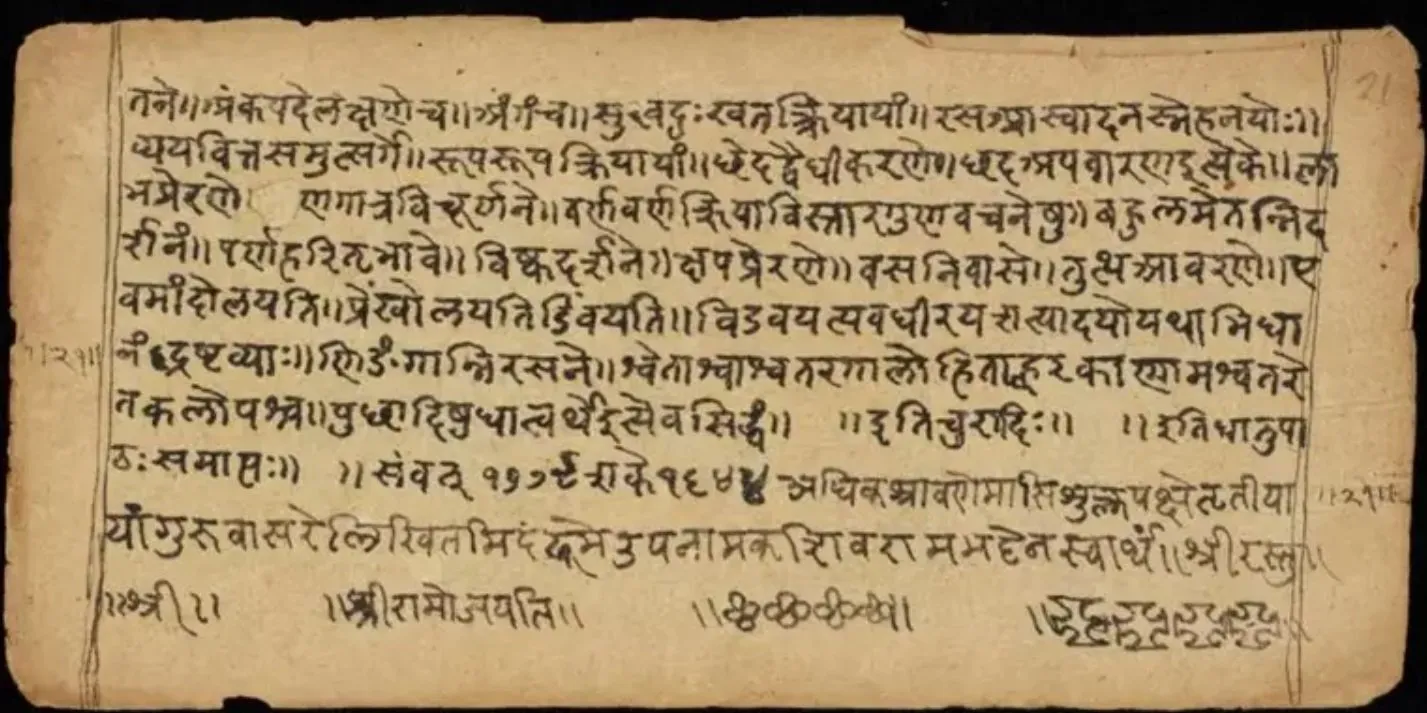 तने॥ अंकपदेलक्षणेच॥ अंगंच॥ सुखदुःखतत्क्रियायां॥ रसआस्वादनस्नेहनयोः॥
व्ययवित्तसमुत्सर्गे॥ रूपरूपक्रियायां॥ छेदद्वैधीकरणे॥ छदअपवारणइत्येके॥ ला
भप्रेरणे। णगात्रविचूर्णने॥ वर्णवर्णक्रियाविस्तारगुणवचनेषु॥ बहुलमेतन्निद
र्शनं॥ पर्णहरितभावे॥ विष्कदर्शने॥ क्षपप्रेरणे॥ वसनिवासे॥ तुत्थआवरणे॥ ए
वमांदोलयति॥ प्रेंखोलयतिडिंवयति॥ विडवयत्यवधीरयत्यादयोयथाभिधा
नंद्रष्टव्याः॥ णिङंगान्निरसने॥ श्वेताश्वाश्वतरगालोहिताह्वरकाणामश्वतरे
तकलोपश्च॥ पुछादिषुधात्वर्थेइत्येवसिद्धं॥ ॥ इतिचुरादिः॥ ॥ इतिधातुपा
ठः समाप्तः॥ ॥ संवत् १७७९ शके १६४४ अधिकश्रावणेमासिशुक्लपक्षेतृतीया
यांगुरुवासरेलिखितमिदं उपनामकशिवरामभट्टेनस्वार्थं॥ श्रीरस्तु॥
॥श्री॥ ॥श्रीरामोजयति॥
॥२१॥
॥२१॥
21